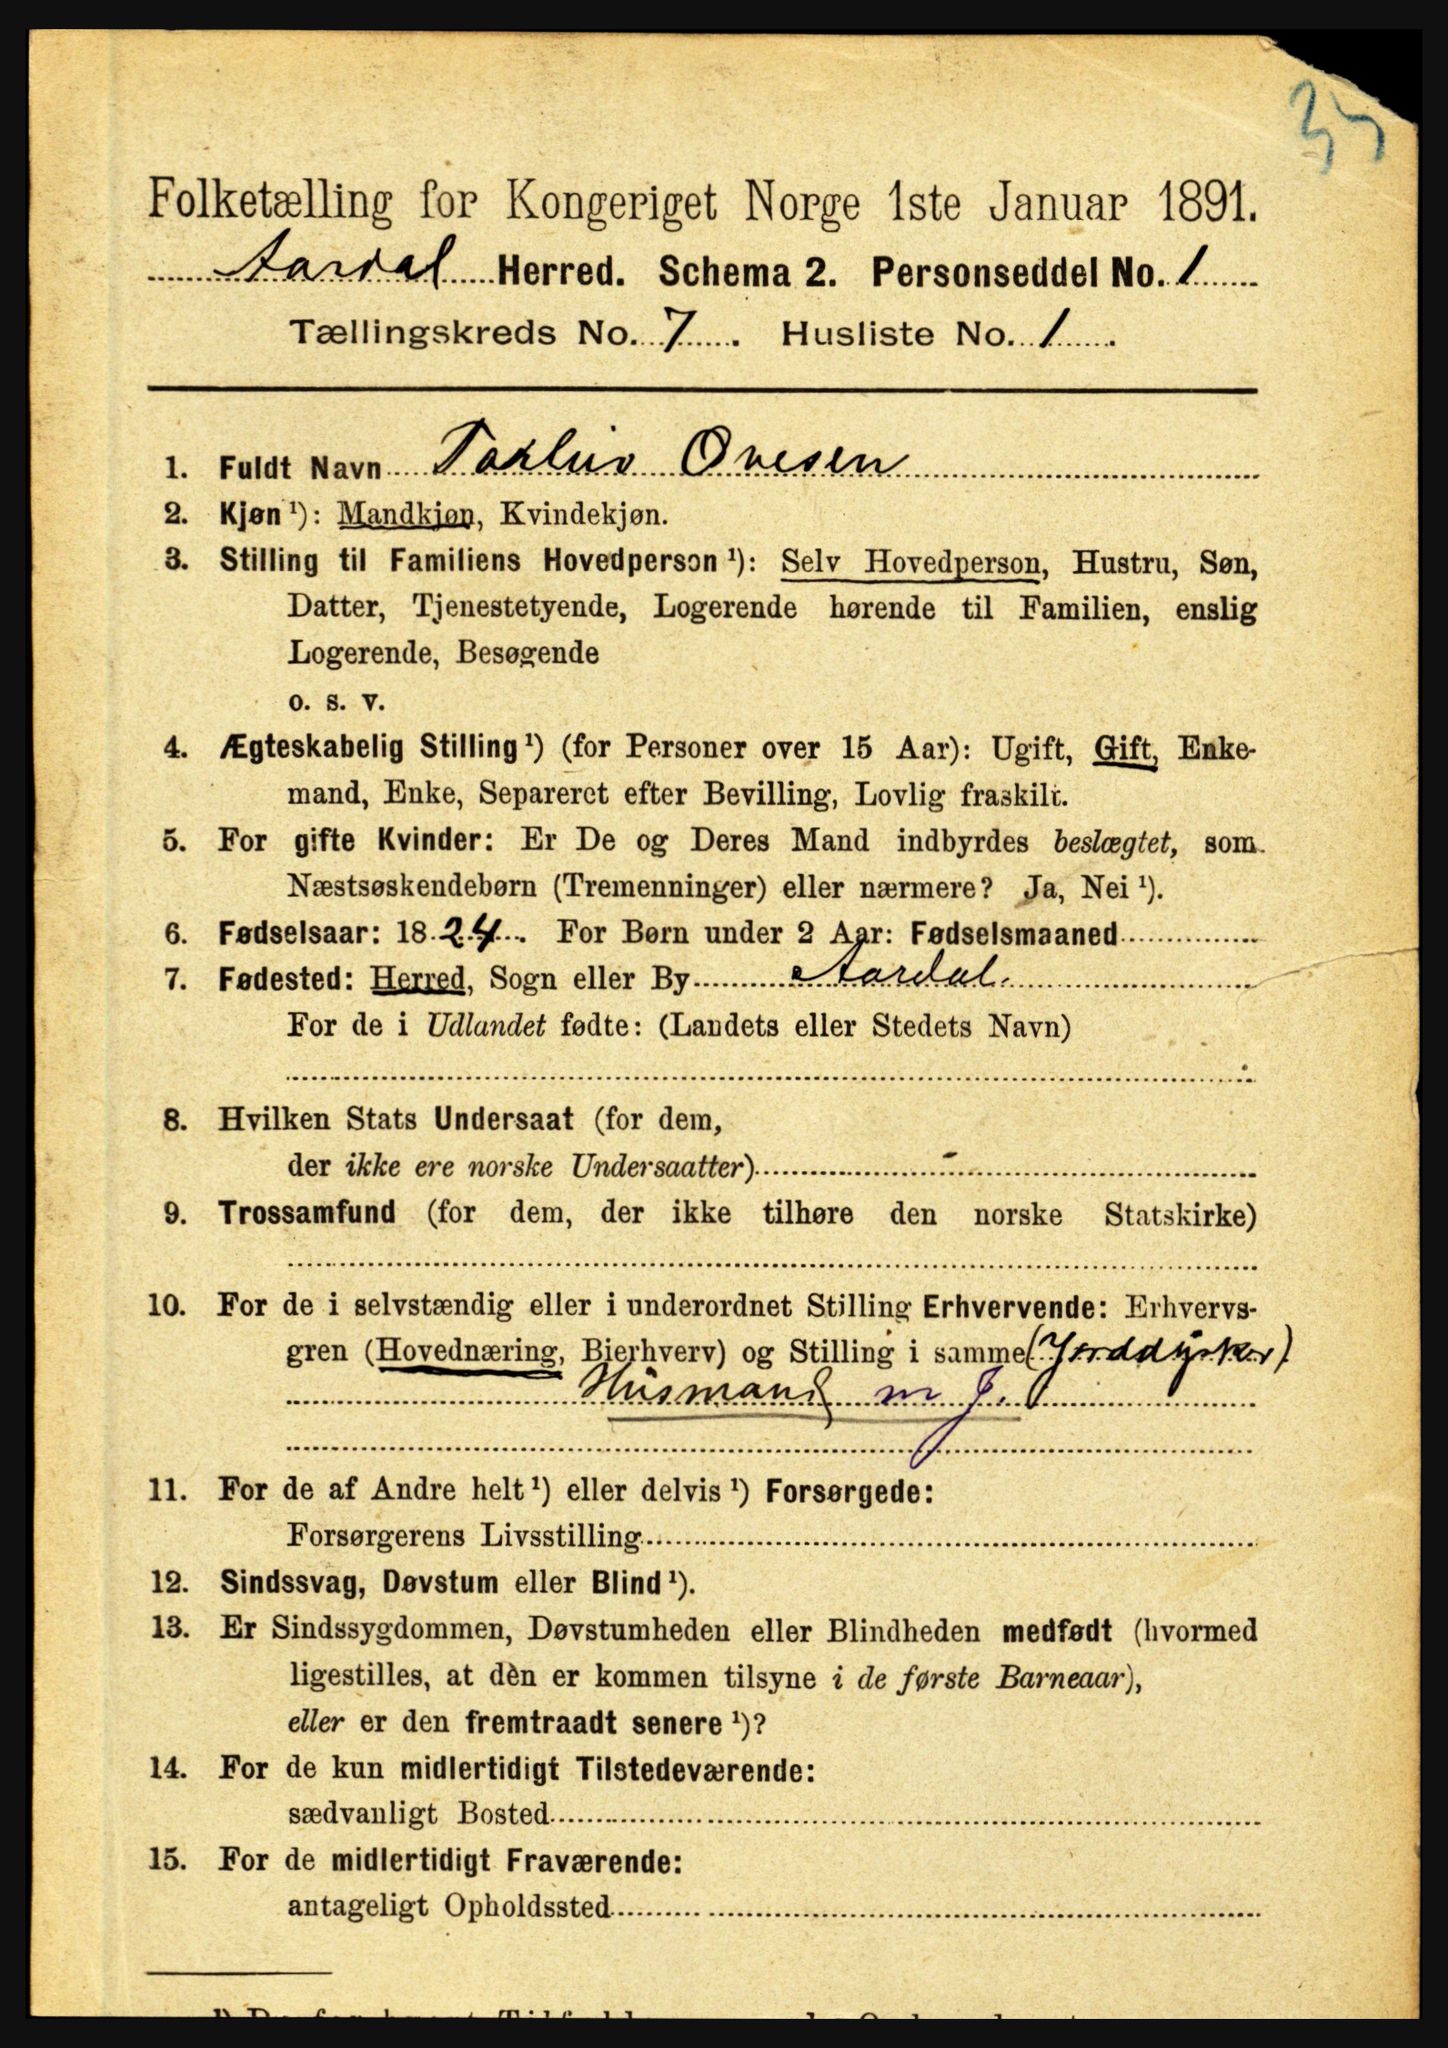 Folketælling for Kongeriget Norge 1ste Januar 1891.
Aardal Herred. Schema 2. Personseddel No. 1
Tællingskreds No. 7. Husliste No. 1.
1. Fuldt Navn Torleiv Ovesen
2. Kjøn ¹): Mandkjøn, Kvindekjøn.
3. Stilling til Familiens Hovedperson ¹): Selv Hovedperson, Hustru, Søn,
Datter, Tjenestetyende, Logerende hørende til Familien, enslig
Logerende, Besøgende
o. s. v.
4. Ægteskabelig Stilling ¹) (for Personer over 15 Aar): Ugift, Gift, Enke-
mand, Enke, Separeret efter Bevilling, Lovlig fraskilt.
5. For gifte Kvinder: Er De og Deres Mand indbyrdes beslægtet, som
Næstsøskendebørn (Tremenninger) eller nærmere? Ja, Nei ¹).
6. Fødselsaar: 1824. For Børn under 2 Aar: Fødselsmaaned
7. Fødested: Herred, Sogn eller By Aardal.
For de i Udlandet fødte: (Landets eller Stedets Navn)
8. Hvilken Stats Undersaat (for dem,
der ikke ere norske Undersaatter)
9. Trossamfund (for dem, der ikke tilhøre den norske Statskirke)
10. For de i selvstændig eller i underordnet Stilling Erhvervende: Erhvervs-
gren (Hovednæring, Bierhverv) og Stilling i samme (Jorddyrker)
Husmand m J.
11. For de af Andre helt ¹) eller delvis ¹) Forsørgede:
Forsørgerens Livsstilling
12. Sindssvag, Døvstum eller Blind ¹).
13. Er Sindssygdommen, Døvstumheden eller Blindheden medfødt (hvormed
ligestilles, at den er kommen tilsyne i de første Barneaar),
eller er den fremtraadt senere ¹)?
14. For de kun midlertidigt Tilstedeværende:
sædvanligt Bosted
15. For de midlertidigt Fraværende:
antageligt Opholdssted